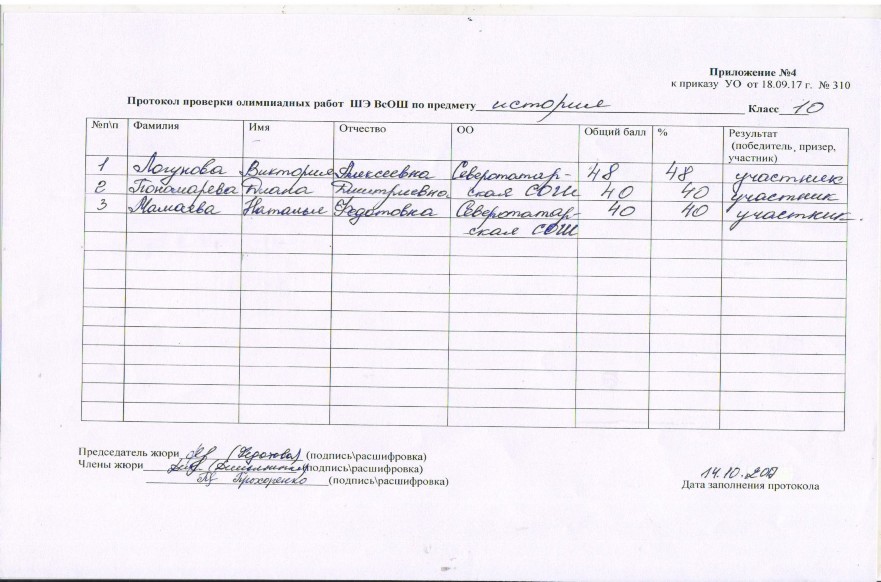 Приложение №4
к приказу УО от 18.09.17 г. № 310
Протокол проверки олимпиадных работ ШЭ ВсОШ по предмету история Класс 10
№п\п Фамилия Имя Отчество ОО Общий балл % Результат
(победитель, призер,
участник)
1 Логунова Виктория Алексеевна Северотатар- 48 48 участник
2 Пономарева Диана Дмитриевна ская СОШ 40 40 участник
3 Мамаева Наталья Федотовна Северотатар- 40 40 участник.
ская СОШ
Председатель жюри (Федотова) (подпись\расшифровка)
Члены жюри (подпись\расшифровка)
Прохоренко (подпись\расшифровка)
14.10.2017
Дата заполнения протокола